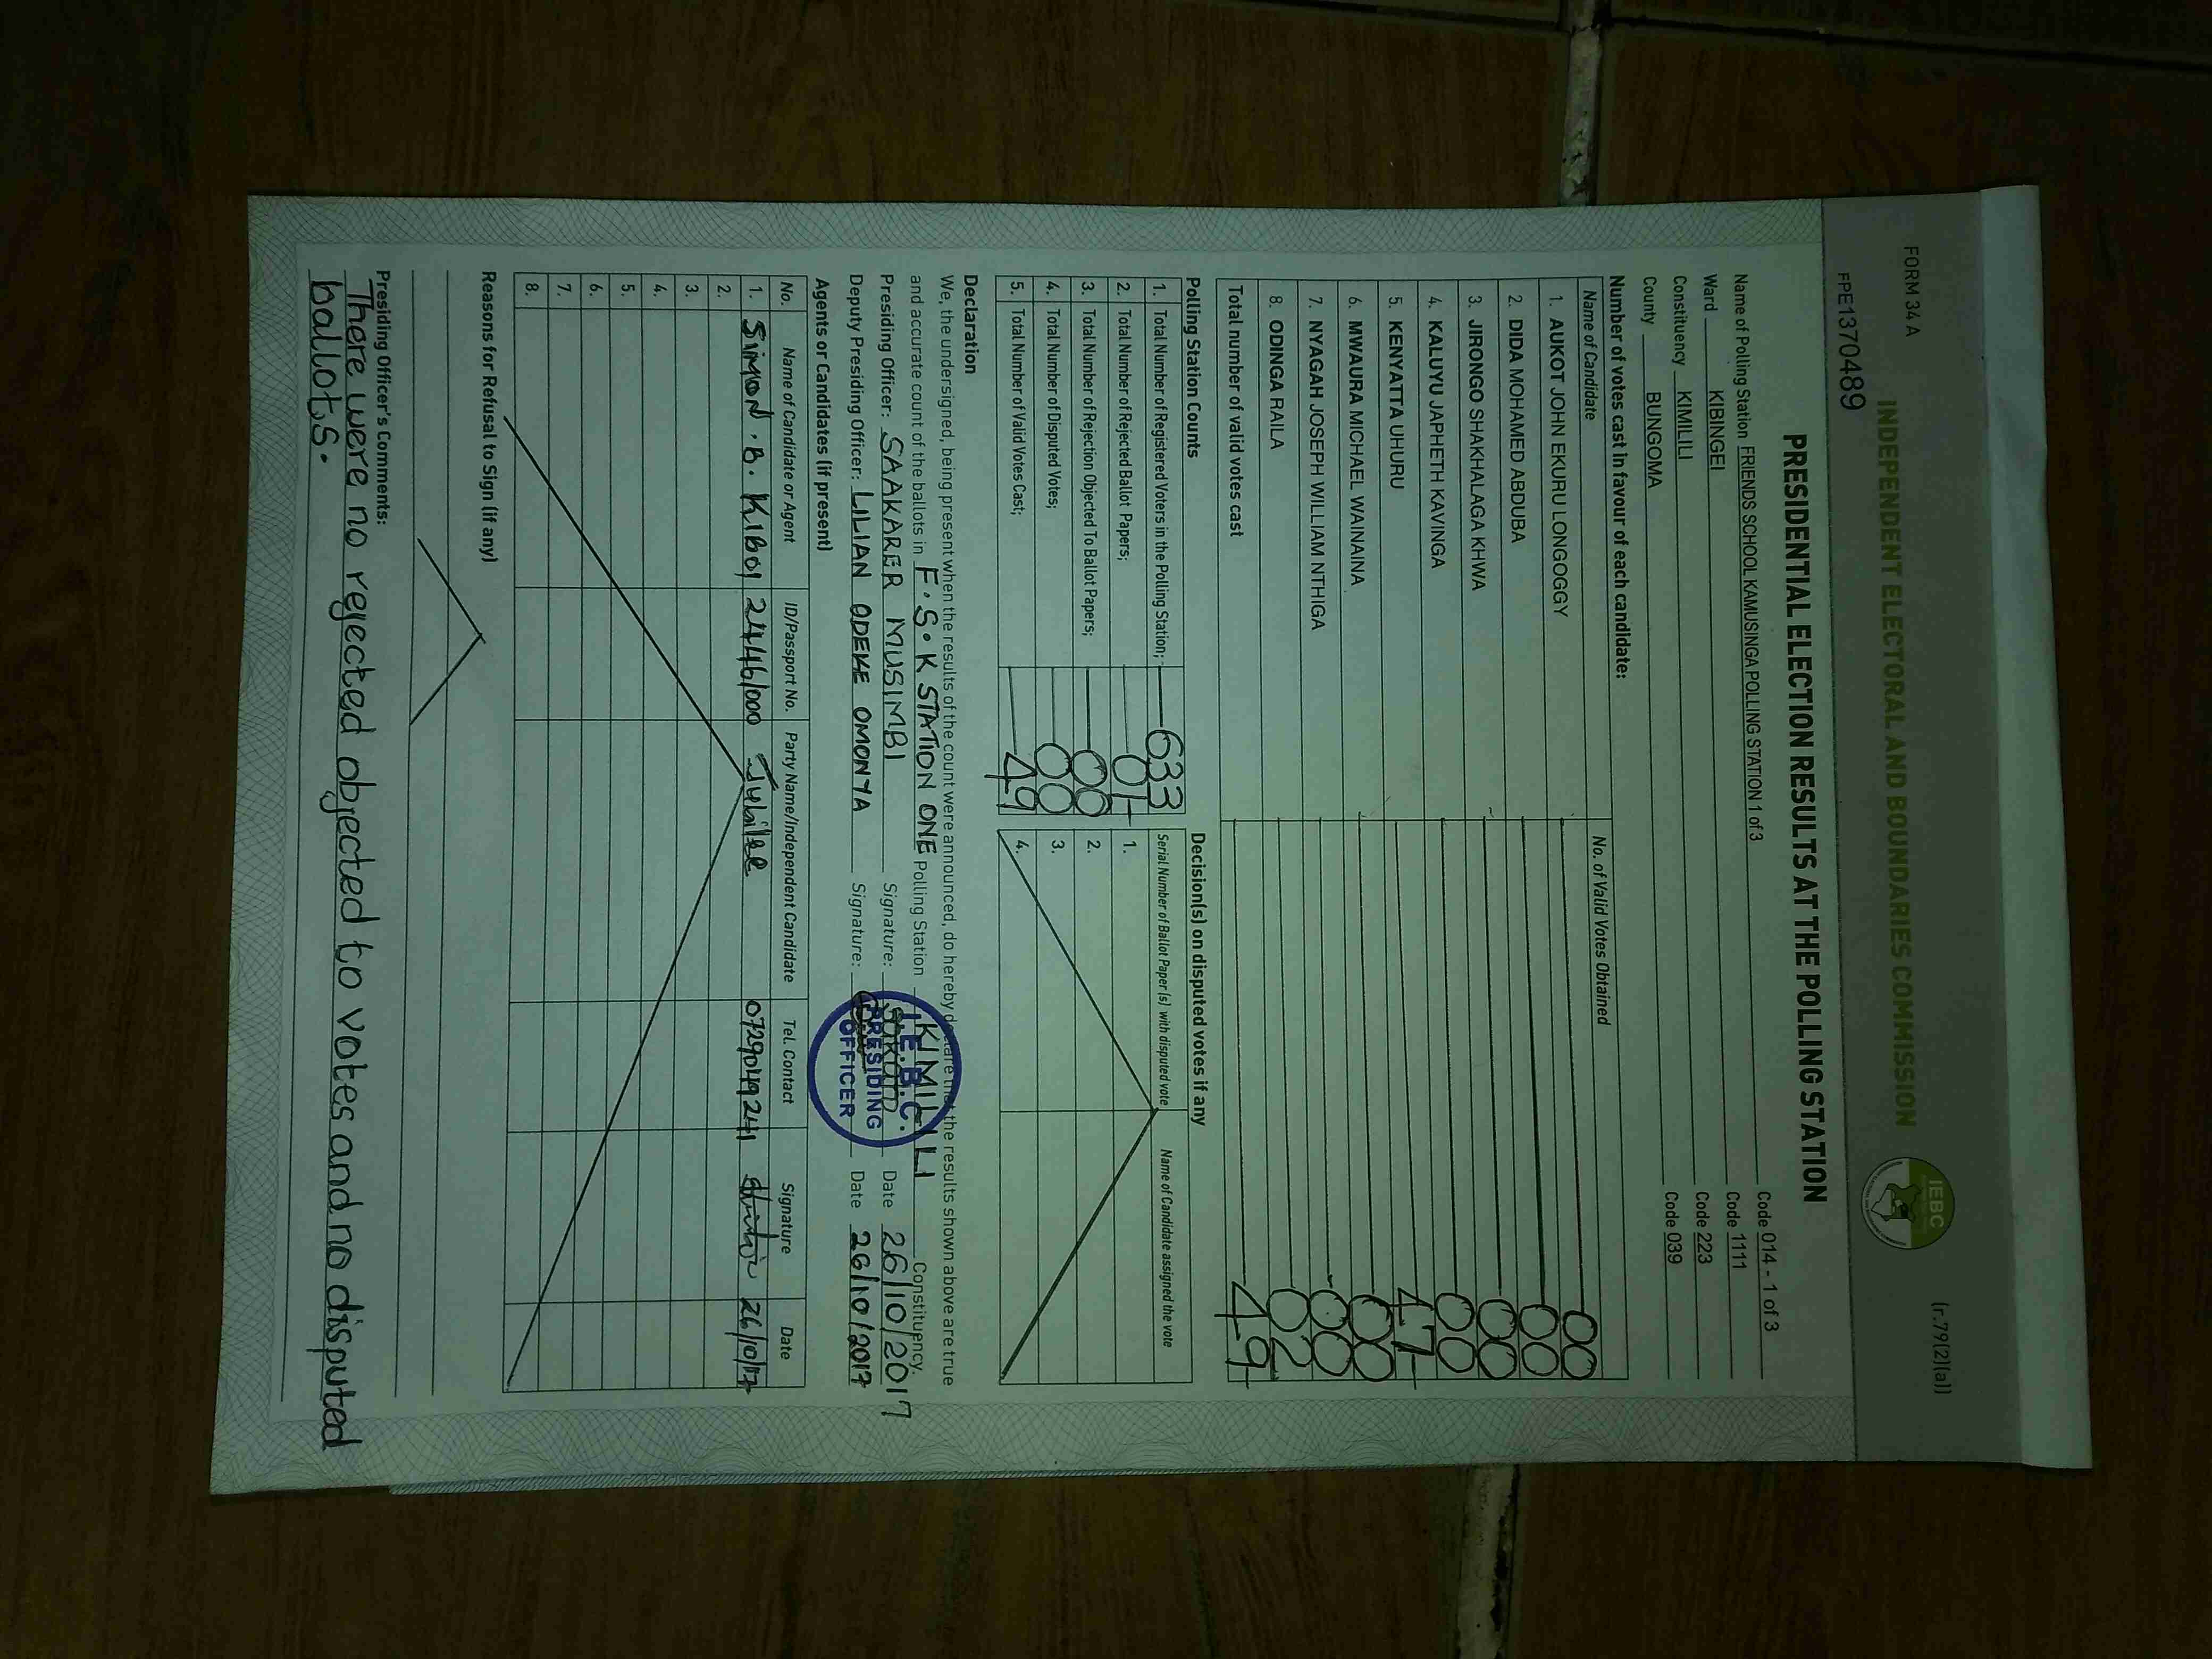 FORM 34 A
(r.79(2)(a))
INDEPENDENT ELECTORAL AND BOUNDARIES COMMISSION
IEBC
FPE1370489
PRESIDENTIAL ELECTION RESULTS AT THE POLLING STATION
Name of Polling Station FRIENDS SCHOOL KAMUSINGA POLLING STATION 1 of 3 Code 014 - 1 of 3
Ward KIBINGEI Code 1111
Constituency KIMILILI Code 223
County BUNGOMA Code 039
Number of votes cast in favour of each candidate:
Name of Candidate No. of Valid Votes Obtained
1. AUKOT JOHN EKURU LONGOGGY 00
2. DIDA MOHAMED ABDUBA 00
3. JIRONGO SHAKHALAGA KHWA 00
4. KALUYU JAPHETH KAVINGA 00
5. KENYATTA UHURU 47
6. MWAURA MICHAEL WAINAINA 00
7. NYAGAH JOSEPH WILLIAM NTHIGA 00
8. ODINGA RAILA 02
Total number of valid votes cast 49
Polling Station Counts
1. Total Number of Registered Voters in the Polling Station; 633
2. Total Number of Rejected Ballot Papers; 01
3. Total Number of Rejection Objected To Ballot Papers; 00
4. Total Number of Disputed Votes; 00
5. Total Number of Valid Votes Cast; 49
Decision(s) on disputed votes if any
Serial Number of Ballot Paper(s) with disputed vote Name of Candidate assigned the vote
1.
2.
3.
4.
Declaration
We, the undersigned, being present when the results of the count were announced, do hereby declare that the results shown above are true
and accurate count of the ballots in F.S.K STATION ONE Polling Station KIMILILI Constituency.
Presiding Officer: SAAKARER MUSIMBI Signature: Date 26/10/2017
Deputy Presiding Officer: LILIAN ODEKE OMONYA Signature: Date 26/10/2017
I.E.B.C.
PRESIDING
OFFICER
Agents or Candidates (if present)
No. Name of Candidate or Agent ID/Passport No. Party Name/Independent Candidate Tel. Contact Signature Date
1. SIMON . B. KIBOI 24461000 Jubilee 0729049241 26/10/17
2.
3.
4.
5.
6.
7.
8.
Reasons for Refusal to Sign (if any)
Presiding Officer's Comments:
There were no rejected objected to votes and no disputed
ballots.